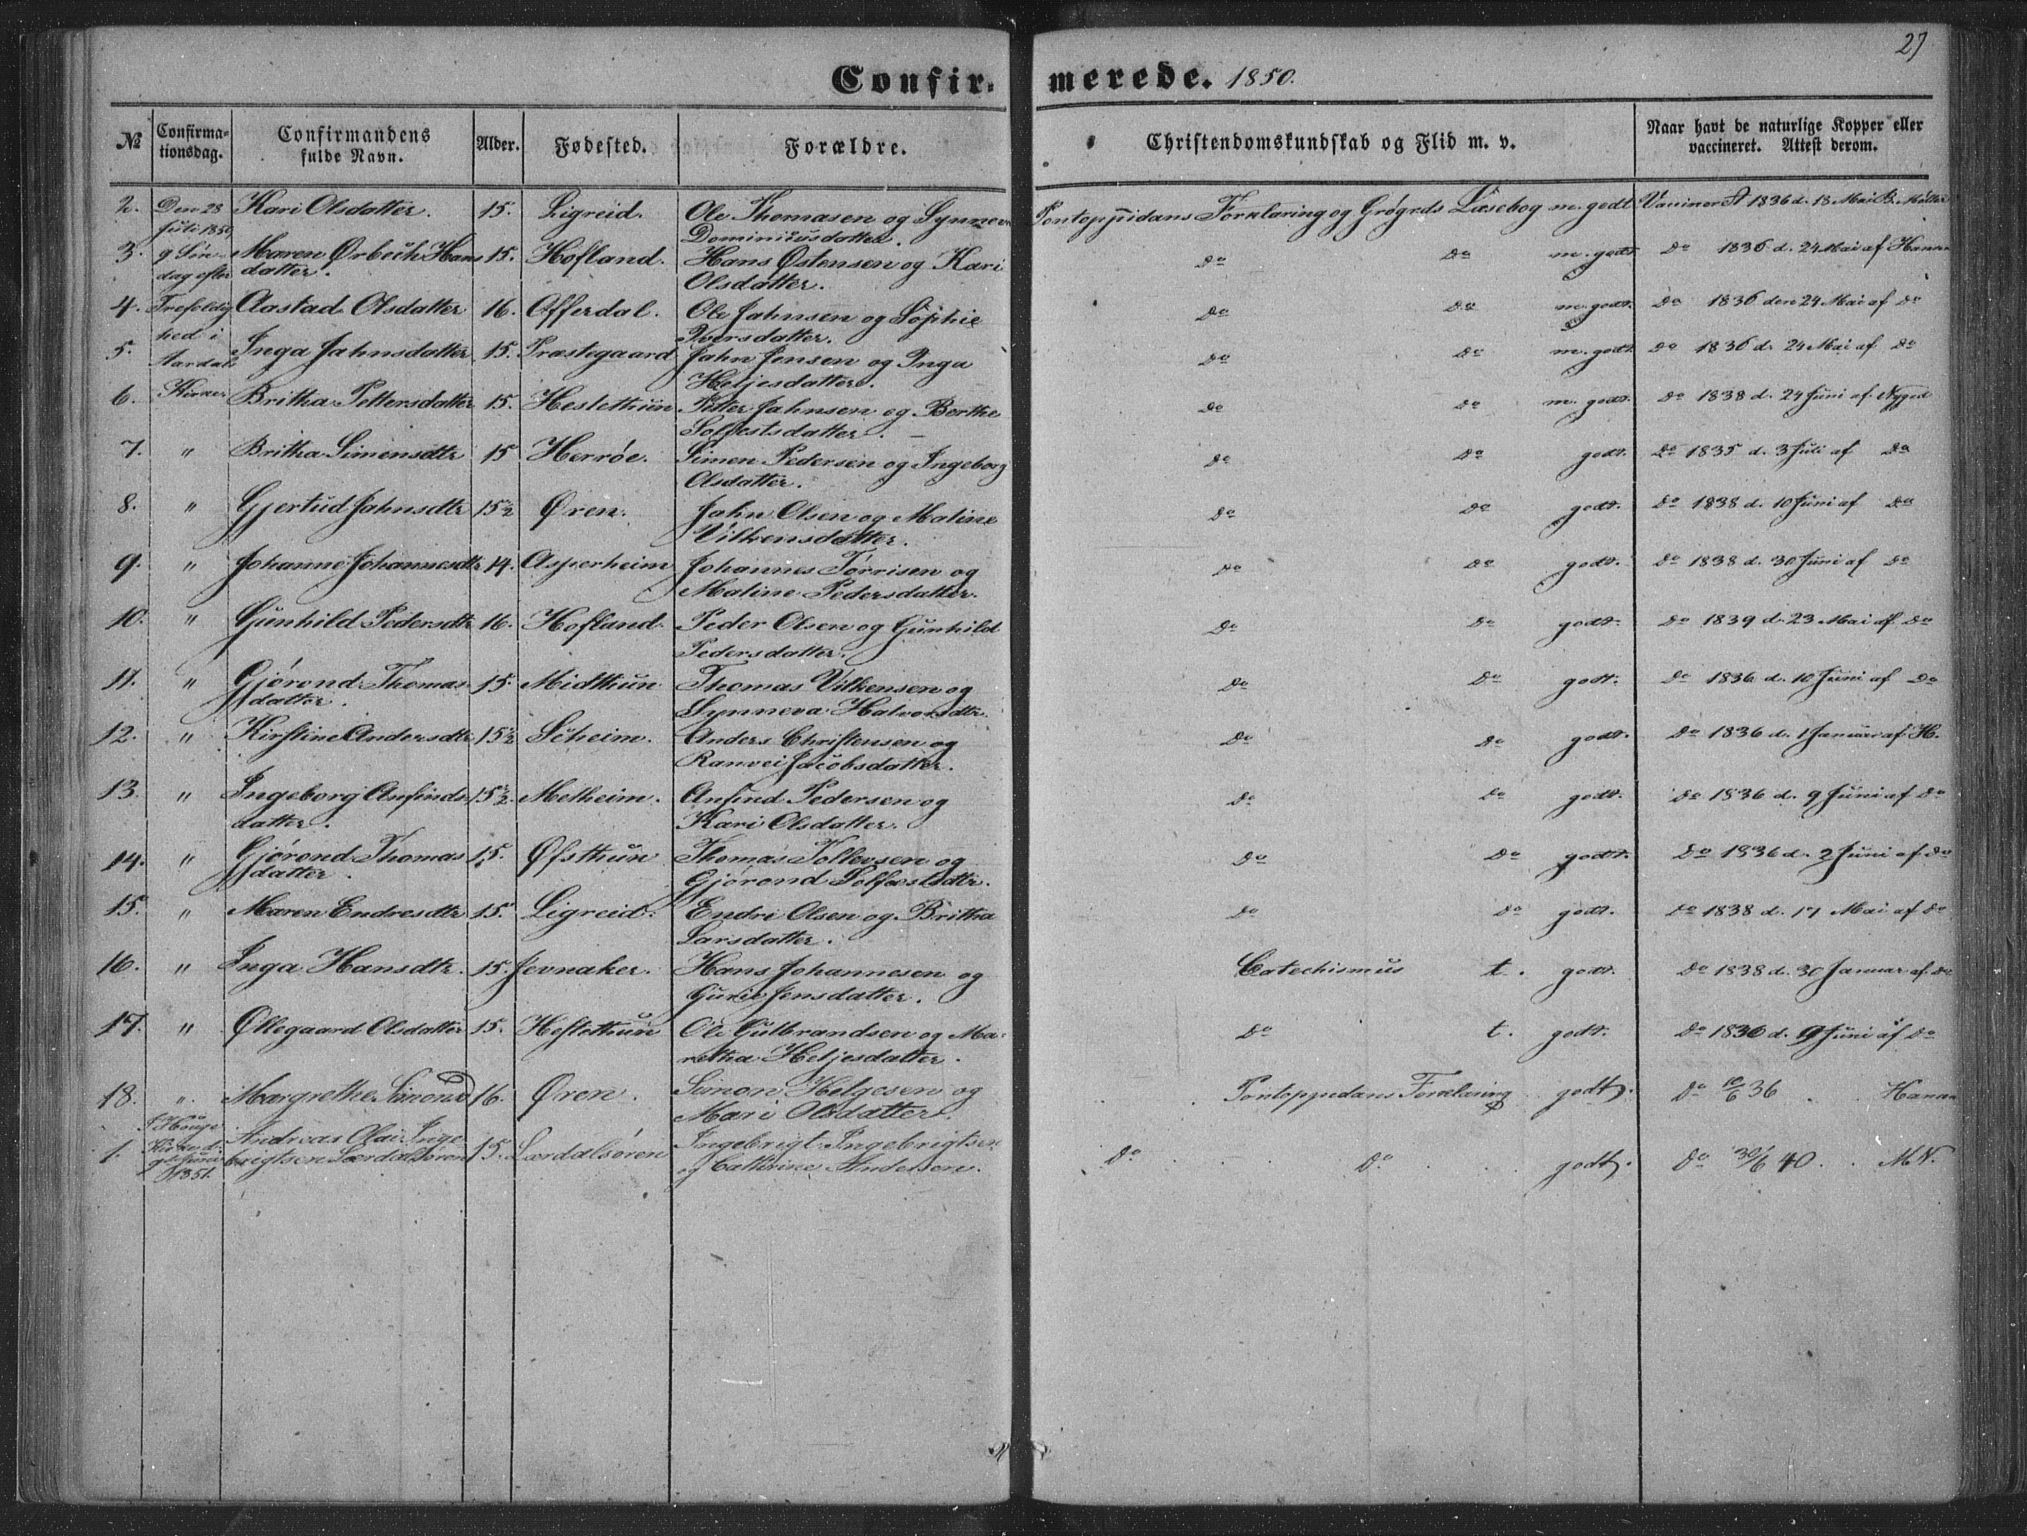 27
Confirmerede. 1850.
№ Confirmationsdag. Confirmandens fulde Navn. Alder. Fødested. Forældre. Christendomskundskab og Flid m. v. Naar havt de naturlige Kopper eller vaccineret. Attest derom.
2. Den 28 Kari Olsdatter. 15. Ligreid. Ole Thomasen og Synneva Pontoppidans Forklaring og Grøgrds Læsebog m. godt Vaccineret 1836 d. 13 Mai B. Møller
Juli 1850 Dominicusdatter.
3. 9 Søn- Maren Ørbech Hans 15. Hofland. Hans Østensen og Kari do do m. godt do 1836 d. 24 Mai af Hanan
dag efter datter. Olsdatter.
4. Trefoldig Aastad Olsdatter 16. Offerdal. Ole Jahnsen og Sophie do do m. godt. do 1836 den 24 Mai af do
hed i Iversdatter.
5. Aardals Inga Jahnsdatter 15. Præstegaard Jahn Jensen og Inga do do m. godt do 1836 d. 24 Mai af do
Heljesdatter.
6. Kirke Britha Pettersdatter 15. Hestethun Petter Jahnsen og Berthe do do m. godt. do 1838 d. 24 Juni af Nyged
Solfestsdatter.
7. " Britha Simensdtr 15 Herrøe. Simen Pedersen og Ingeborg do do godt. do 1835 d. 3 Juli af do
Olsdatter.
8. " Gjertud Jahnsdtr 15½ Øren. Jahn Olsen og Maline do do godt. do 1838 d. 10 Juni af do
Vilkensdatter.
9. " Johanne Johannesdtr 14. Asperheim Johannes Tørrisen og do do godt. do 1838 d. 30 Juni af do
Maline Pedersdatter.
10. " Gunhild Pedersdtr 16. Hofland. Peder Olsen og Gunhild do do godt. do 1839 d. 23 Mai af do
Pedersdatter.
11. " Gjørond Thomas 15. Midthun Thomas Vilkensen og do do godt. do 1836 d. 10 Juni af do
datter. Synneva Halvorsdtr.
12. " Kirstine Andersdtr 15½ Seheim. Anders Christensen og do do godt. do 1836 d. 1 Januar af H.
Ranvei Jacobsdatter.
13. " Ingeborg Anfinds 15½. Melheim. Anfind Pedersen og do do godt. do 1836 d. 9 Juni af do
datter. Kari Olsdatter.
14. " Gjørond Thomas 15. Øfsthun Thomas Tollevsen og do do godt. do 1836 d. 2 Juni af do
datter. Gjørond Solfestsdtr.
15. " Maren Endresdtr 15. Ligreid. Endre Olsen og Britha do do godt. do 1838 d. 17 Mai af do
Larsdatter.
16. " Inga Hansdtr. 15. Jevnaker. Hans Johannesen og Catechismus t. godt. do 1838 d. 30 Januar af do
Gurie Jensdatter.
17. " Øllegaard Olsdatter 15. Hestethun Ole Gulbrandsen og Ma- do t. godt. do 1836 d. 9 Juni af do
retha Heljesdatter.
18. " Margrethe Simonsd 16. Øren. Simon Helgesen og Pontoppidans Forklaring godt. do 10/6 36 Hanan
Mari Olsdatter.
1. Andreas Olai Inge- 15. Lærdalsøren Ingebrigt Ingebrigtsen do do godt. do 30/6 40 M.N.
1851. brigtsen Lærdalsøren og Cathrine Andersen.